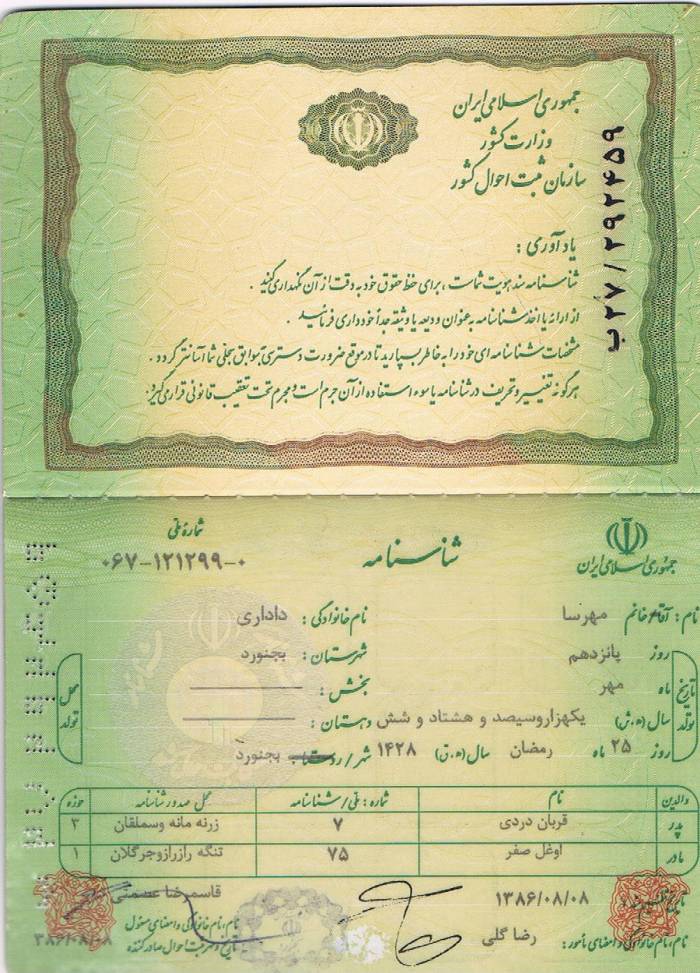 جمهوری اسلامی ایران
وزارت کشور
سازمان ثبت احوال کشور
ب۲۷/۲۹۲۴۵۹
یادآوری :
شناسنامه سند هویت شماست ، برای حفظ حقوق خود به دقت از آن نگهداری کنید .
از ارائه یا اخذ شناسنامه به عنوان ودیعه یا وثیقه جداً خودداری فرمائید .
مشخصات شناسنامه ای خود را به خاطر بسپارید تا در موقع ضرورت دسترسی به سوابق سجلی شما آسانتر گردد .
هرگونه تغییر و تحریف در شناسنامه یا سوء استفاده از آن جرم است و مجرم تحت تعقیب قانونی قرار می گیرد .
جمهوری اسلامی ایران
شناسنامه
شماره ملی
۰۶۷-۱۲۱۲۹۹-۰
نام : آقا/خانم مهرسا نام خانوادگی : داداری
تاریخ تولد
روز پانزدهم شهرستان : بجنورد
ماه مهر بخش :
سال (ه.ش) یکهزاروسیصد و هشتاد و شش دهستان :
روز ۲۵ ماه رمضان سال (ه.ق) ۱۴۲۸ شهر / روستا : بجنورد
محل تولد
والدین نام شماره : ملی/شناسنامه محل صدور شناسنامه حوزه
پدر قربان دردی ۷ زرنه مانه وسملقان ۳
مادر اوغل صفر ۷۵ تنگه رازرازوجرگلان ۱
۱۳۸۶/۰۸/۰۸ قاسمرضا عصمتی
نام، نام خانوادگی و امضای مأمور : رضا گلی
نام، نام خانوادگی و امضای مسئول
۱۳۸۶/۰۸/۰۸